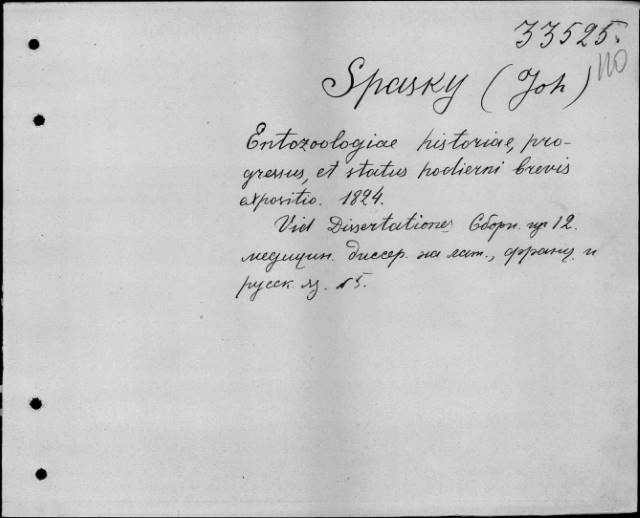 33525.
по
Spasky (Joh)
Entozoologiae historiae, pro-
gressus, et status hodierni brevis
expositio. 1824.
Vid Dissertationes Сборн. из 12.
медицин. диссер. на лат., франц. и
русск. яз. №5.